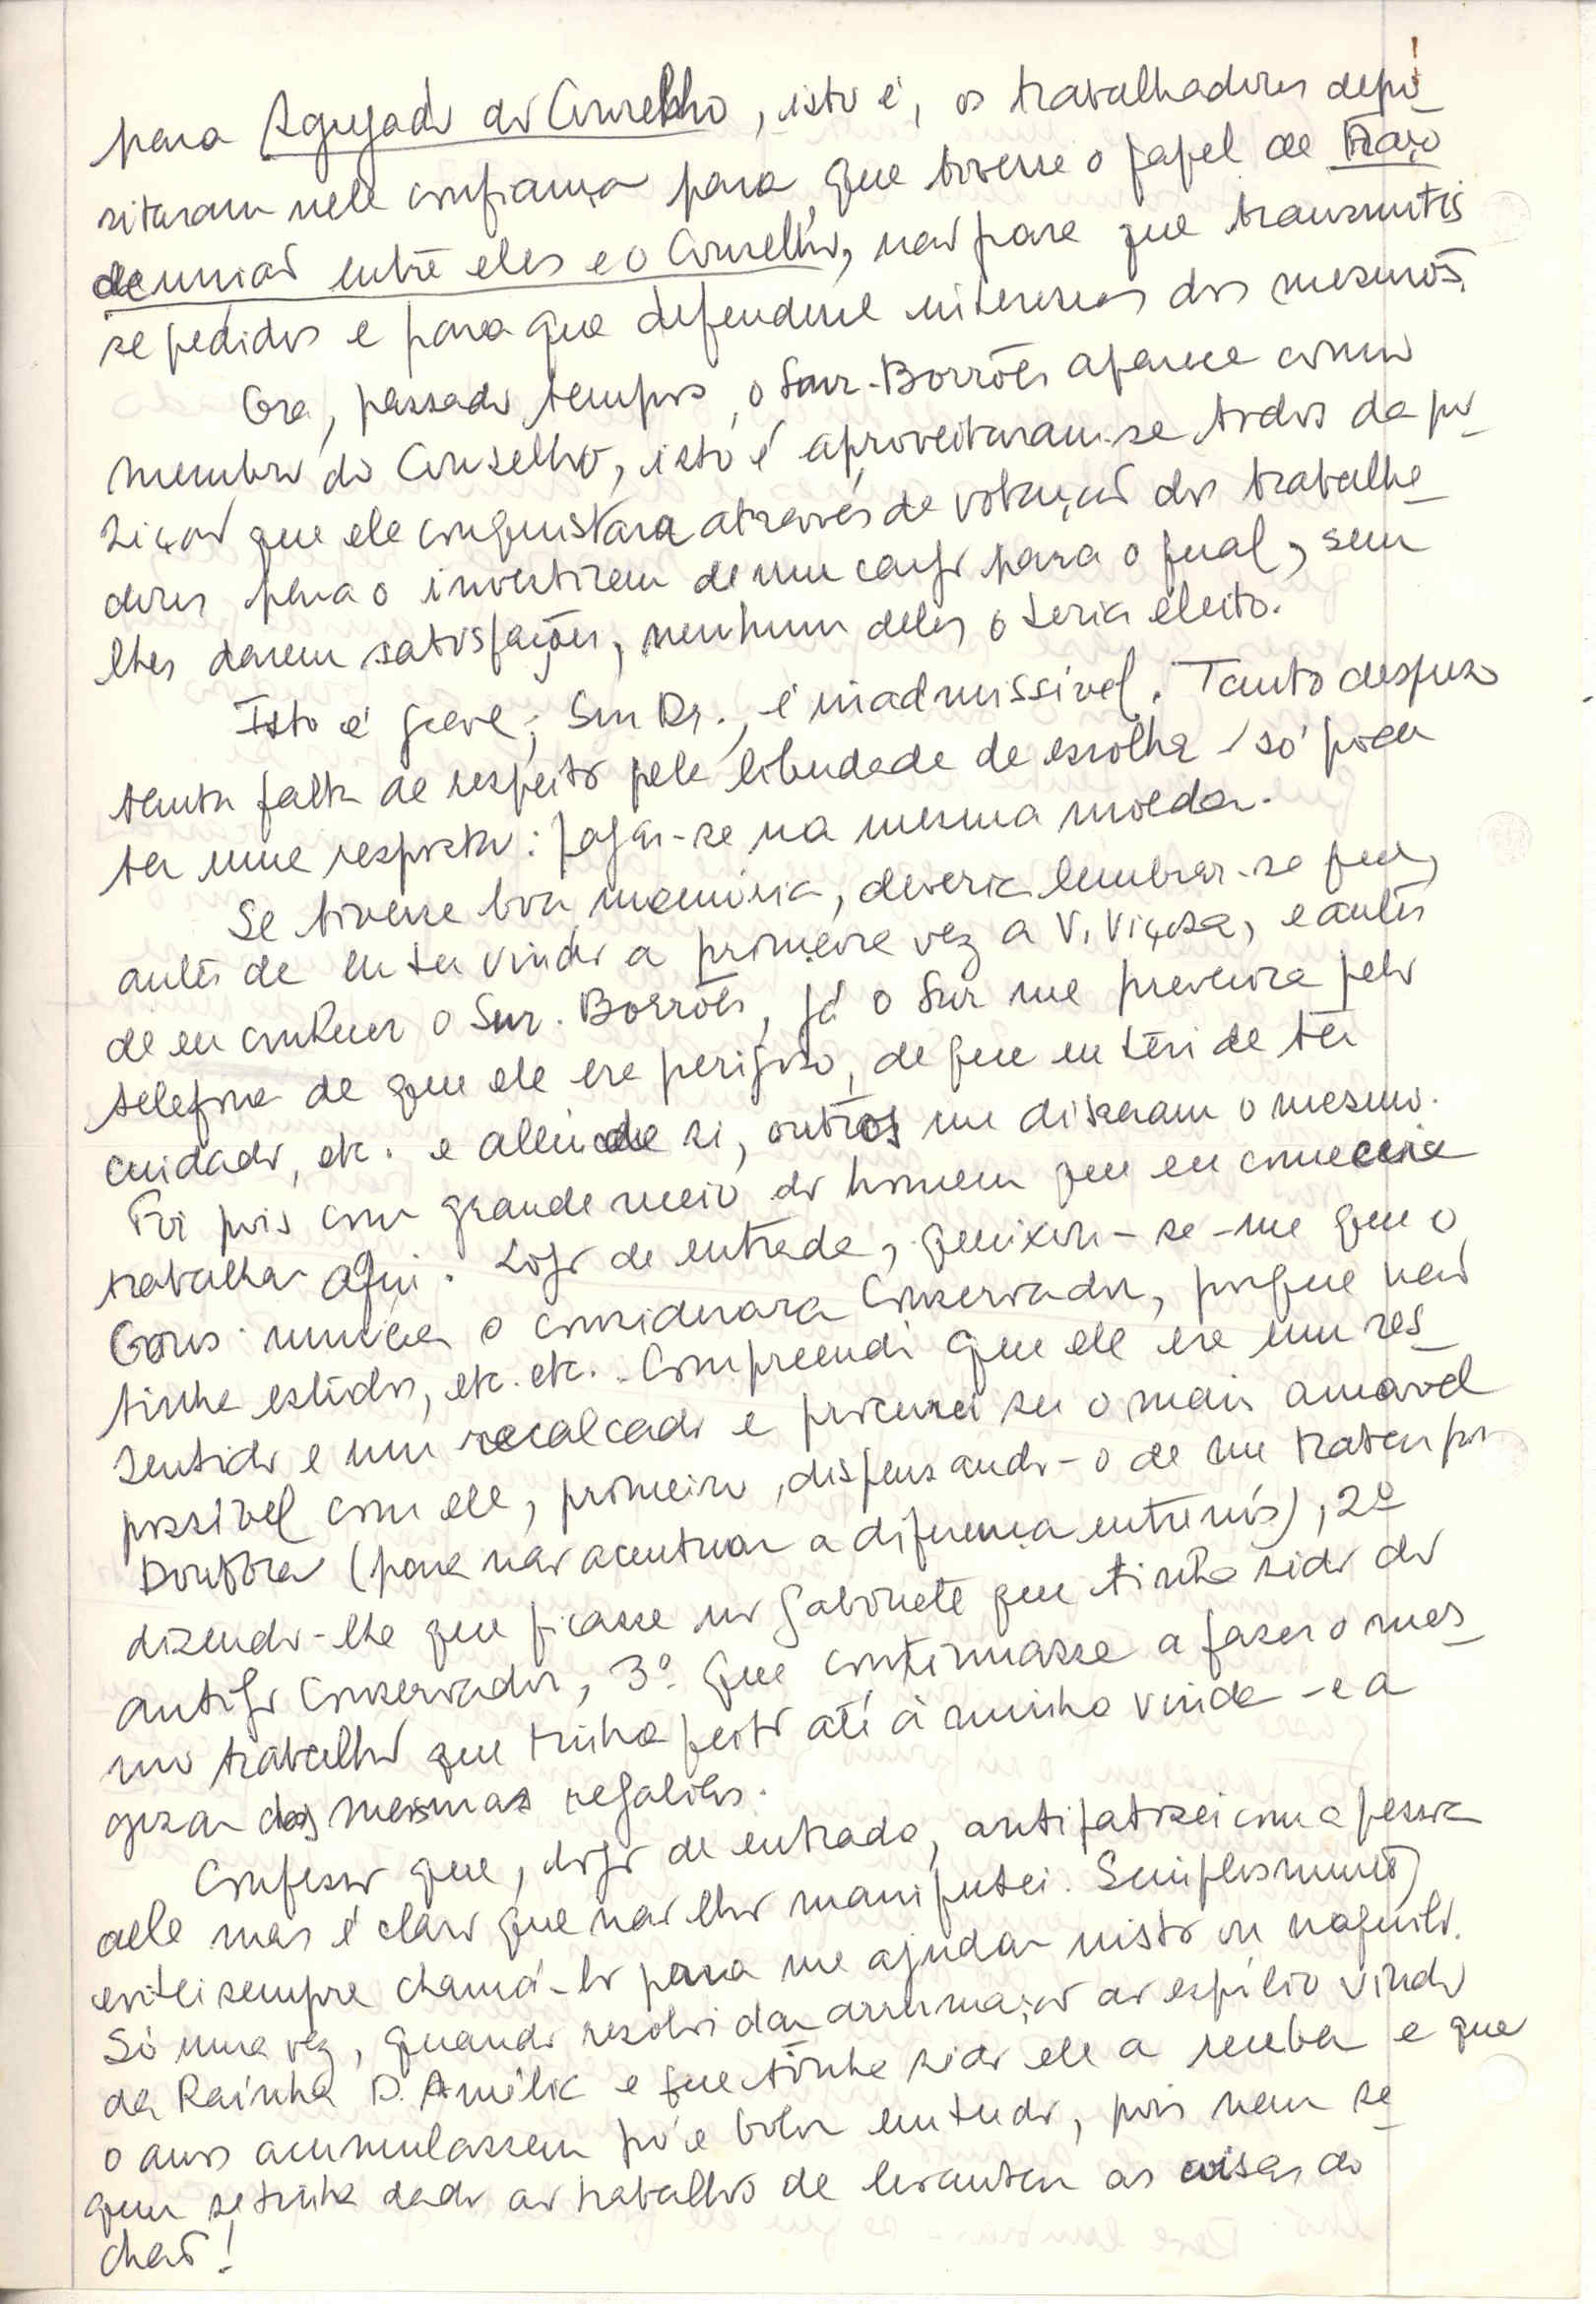 para Agregado do Conselho, isto é, os trabalhadores depo-
sitaram nele confiança para que tivesse o papel de traço
de união entre eles e o Conselho, não para que transmitis
se pedidos e para que defendesse interesses dos mesmos.
Ora, passado tempos, o Snr. Borrões aparece como
membro do Conselho, isto é aproveitaram-se todos da po-
sição que ele conquistara através de votação dos trabalha-
dores para o investirem de um cargo para o qual, sem
lhes darem satisfações, nenhum deles o teria eleito.
Isto é grave, Snr Dr., é inadmissível. Tanto despreso
tanta falta de respeito pela liberdade de escolha só pode
ter uma resposta: pagar-se na mesma moeda.
Se tivesse boa memória, deveria lembrar-se que,
antes de eu ter vindo a primeira vez a V. Viçosa, e antes
de eu conhecer o Snr. Borrões, já o Snr me prevenira pelo
telefone de que ele era perigoso, de que eu teri de ter
cuidado, etc. e além de si, outros me disseram o mesmo.
Foi pois com grande meio do homem que eu comecei a
trabalhar aqui. Logo de entrada, queixou-se-me que o
nunca o considerara Conservador, porque não
tinha estudos, etc. etc. Compreendi que ele era um res-
sentido e um recalcado e procurei ser o mais amavel
possivel com ele, primeiro, dispensando-o de me tratar por
Doutora (para não acentuar a diferença entre nós), 2º
dizendo-lhe que ficasse no gabinete que tinha sido do
antigo Conservador, 3º que continuasse a fazer o mes-
mo trabalho que tinha feito até à minha vinda - e a
gozar das mesmas regalias.
Confesso que, logo de entrada, antipatizei com a pessoa
dele mas é claro que não lho manifestei. Simplesmente,
evitei sempre chamá-lo para me ajudar nisto ou naquilo.
Só uma vez, quando resolvi dar arrumação ao espólio vindo
da Rainha D. Amélia e que tinha sido ele a receber e que
o anos acumulassem pó e bolor em tudo, pois nem se-
quer se tinha dado ao trabalho de levantar as coisas do
chão!